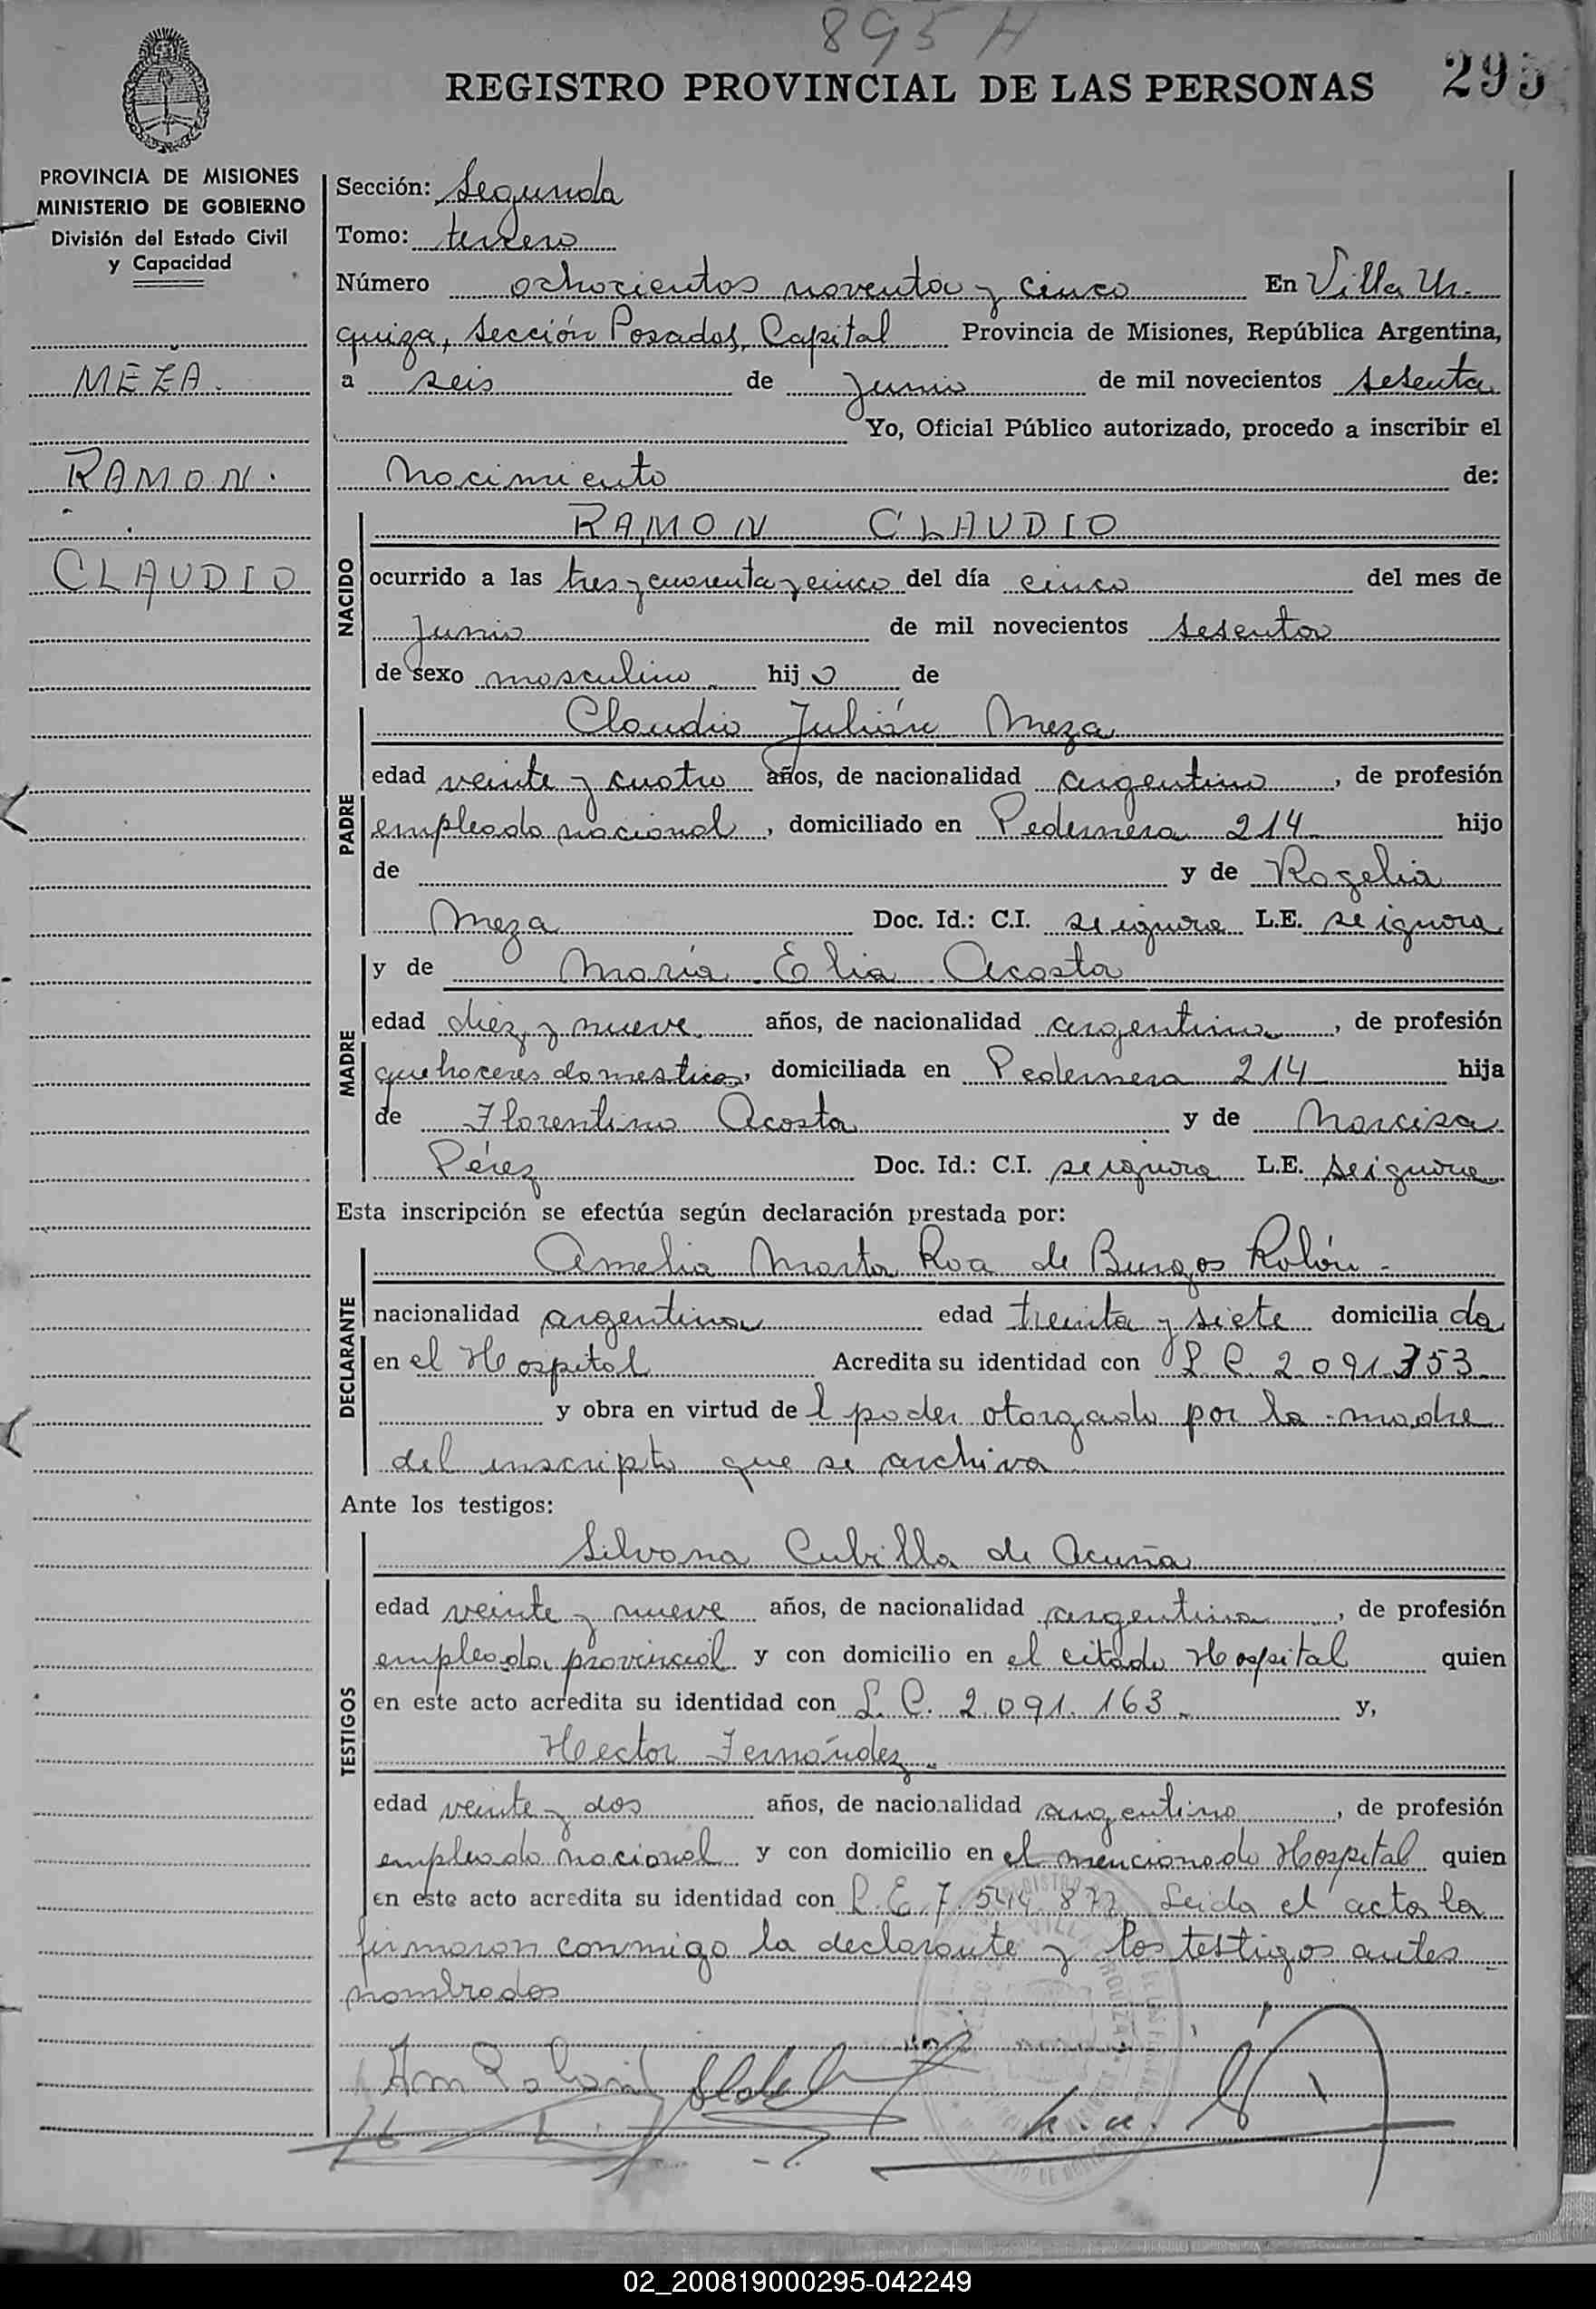 895 H
REGISTRO PROVINCIAL DE LAS PERSONAS 295
PROVINCIA DE MISIONES
MINISTERIO DE GOBIERNO
División del Estado Civil
y Capacidad
MEZA.
RAMON.
CLAUDIO
Sección: Segunda
Tomo: tercero
Número ochocientos noventa y cinco En Villa Ur-
quiza, Sección Posadas, Capital Provincia de Misiones, República Argentina,
a seis de junio de mil novecientos sesenta
Yo, Oficial Público autorizado, procedo a inscribir el
Nacimiento de:
NACIDO
RAMON CLAUDIO
ocurrido a las tres y cuarenta y cinco del día cinco del mes de
junio de mil novecientos sesenta
de sexo masculino hijo de
PADRE
Claudio Julián Meza
edad veinte y cuatro años, de nacionalidad argentino, de profesión
empleado nacional, domiciliado en Pedernera 214 hijo
de y de Rogelia
Meza Doc. Id.: C.I. se ignora L.E. se ignora
MADRE
y de María Elia Acosta
edad diez y nueve años, de nacionalidad argentina, de profesión
quehaceres domesticos, domiciliada en Pedernera 214 hija
de Florentino Acosta y de Narcisa
Pérez Doc. Id.: C.I. se ignora L.E. se ignora
Esta inscripción se efectúa según declaración prestada por:
DECLARANTE
Amelia Marta Roa de Burgos Rolón
nacionalidad argentina edad treinta y siete domiciliada
en el Hospital Acredita su identidad con L C 2.091.753
y obra en virtud del poder otorgado por la madre
del inscripto que se archiva
Ante los testigos:
TESTIGOS
Silvana Cubilla de Acuña
edad veinte y nueve años, de nacionalidad argentina, de profesión
empleada provincial y con domicilio en el citado Hospital quien
en este acto acredita su identidad con L. C. 2.091.163 y,
Hector Fernández
edad veinte y dos años, de nacionalidad argentino, de profesión
empleado nacional y con domicilio en el mencionado Hospital quien
en este acto acredita su identidad con L.E. 7.544.877 Leida el acta la
firmaron conmigo la declarante y los testigos antes
nombrados
02_200819000295-042249